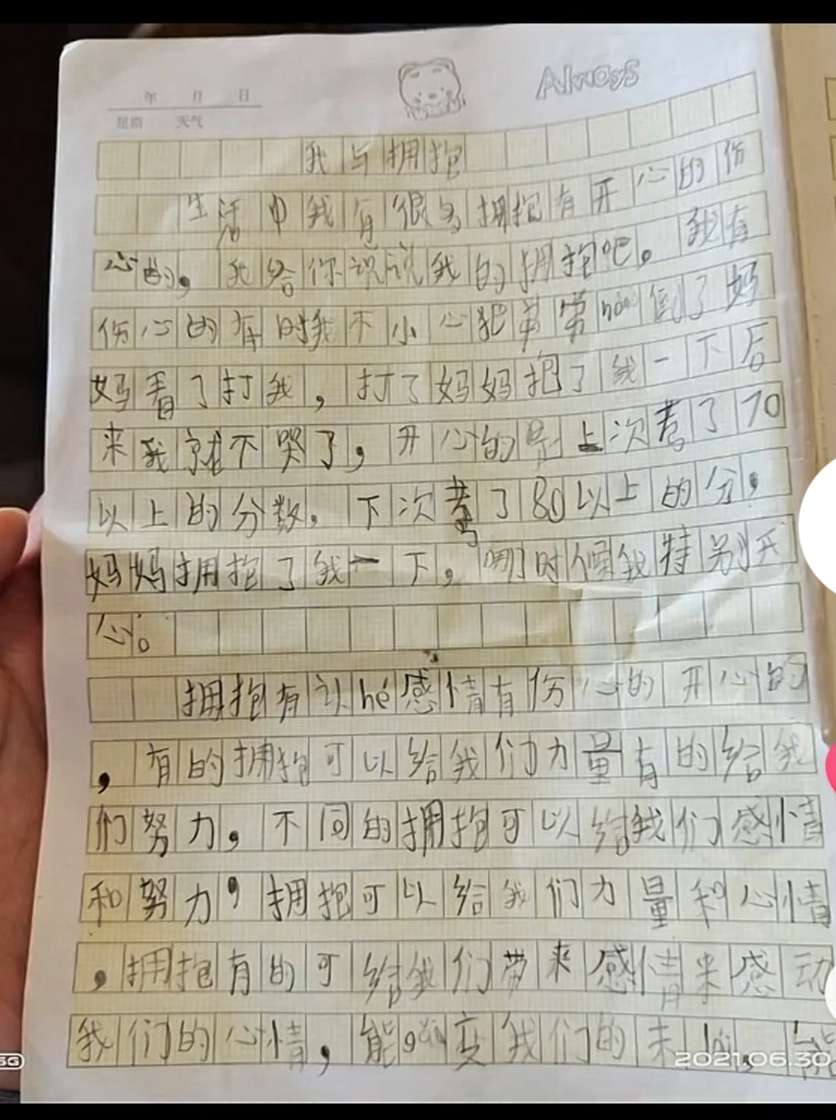 年 月 日
Always
星期 天气
我与拥抱
生活中我有很多拥抱有开心的伤
心的。我给你说说我的拥抱吧。我有
伤心的有时我不小心把花 到了妈
妈看了打我，打了妈妈抱了我一下后
来我就不哭了，开心的是上次考了70
以上的分数。下次考了80以上的分，
妈妈拥抱了我一下。哪时候我特别开
心。
拥抱有 hé感情有伤心的开心的
，有的拥抱可以给我们力量有的给我
们努力，不同的拥抱可以给我们感情
和努力，拥抱可以给我们力量和心情
，拥抱有的可给我们带来感情来感动
我们的心情，能gǎi变我们的未lái，能
2021.06.30
5G